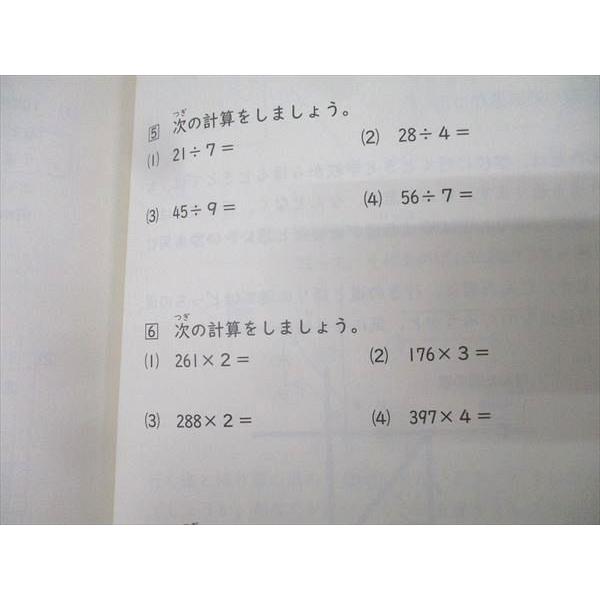 つぎ
5 次の計算をしましょう。
(1) 21÷7= (2) 28÷4=
(3) 45÷9= (4) 56÷7=
つぎ
6 次の計算をしましょう。
(1) 261×2= (2) 176×3=
(3) 288×2= (4) 397×4=